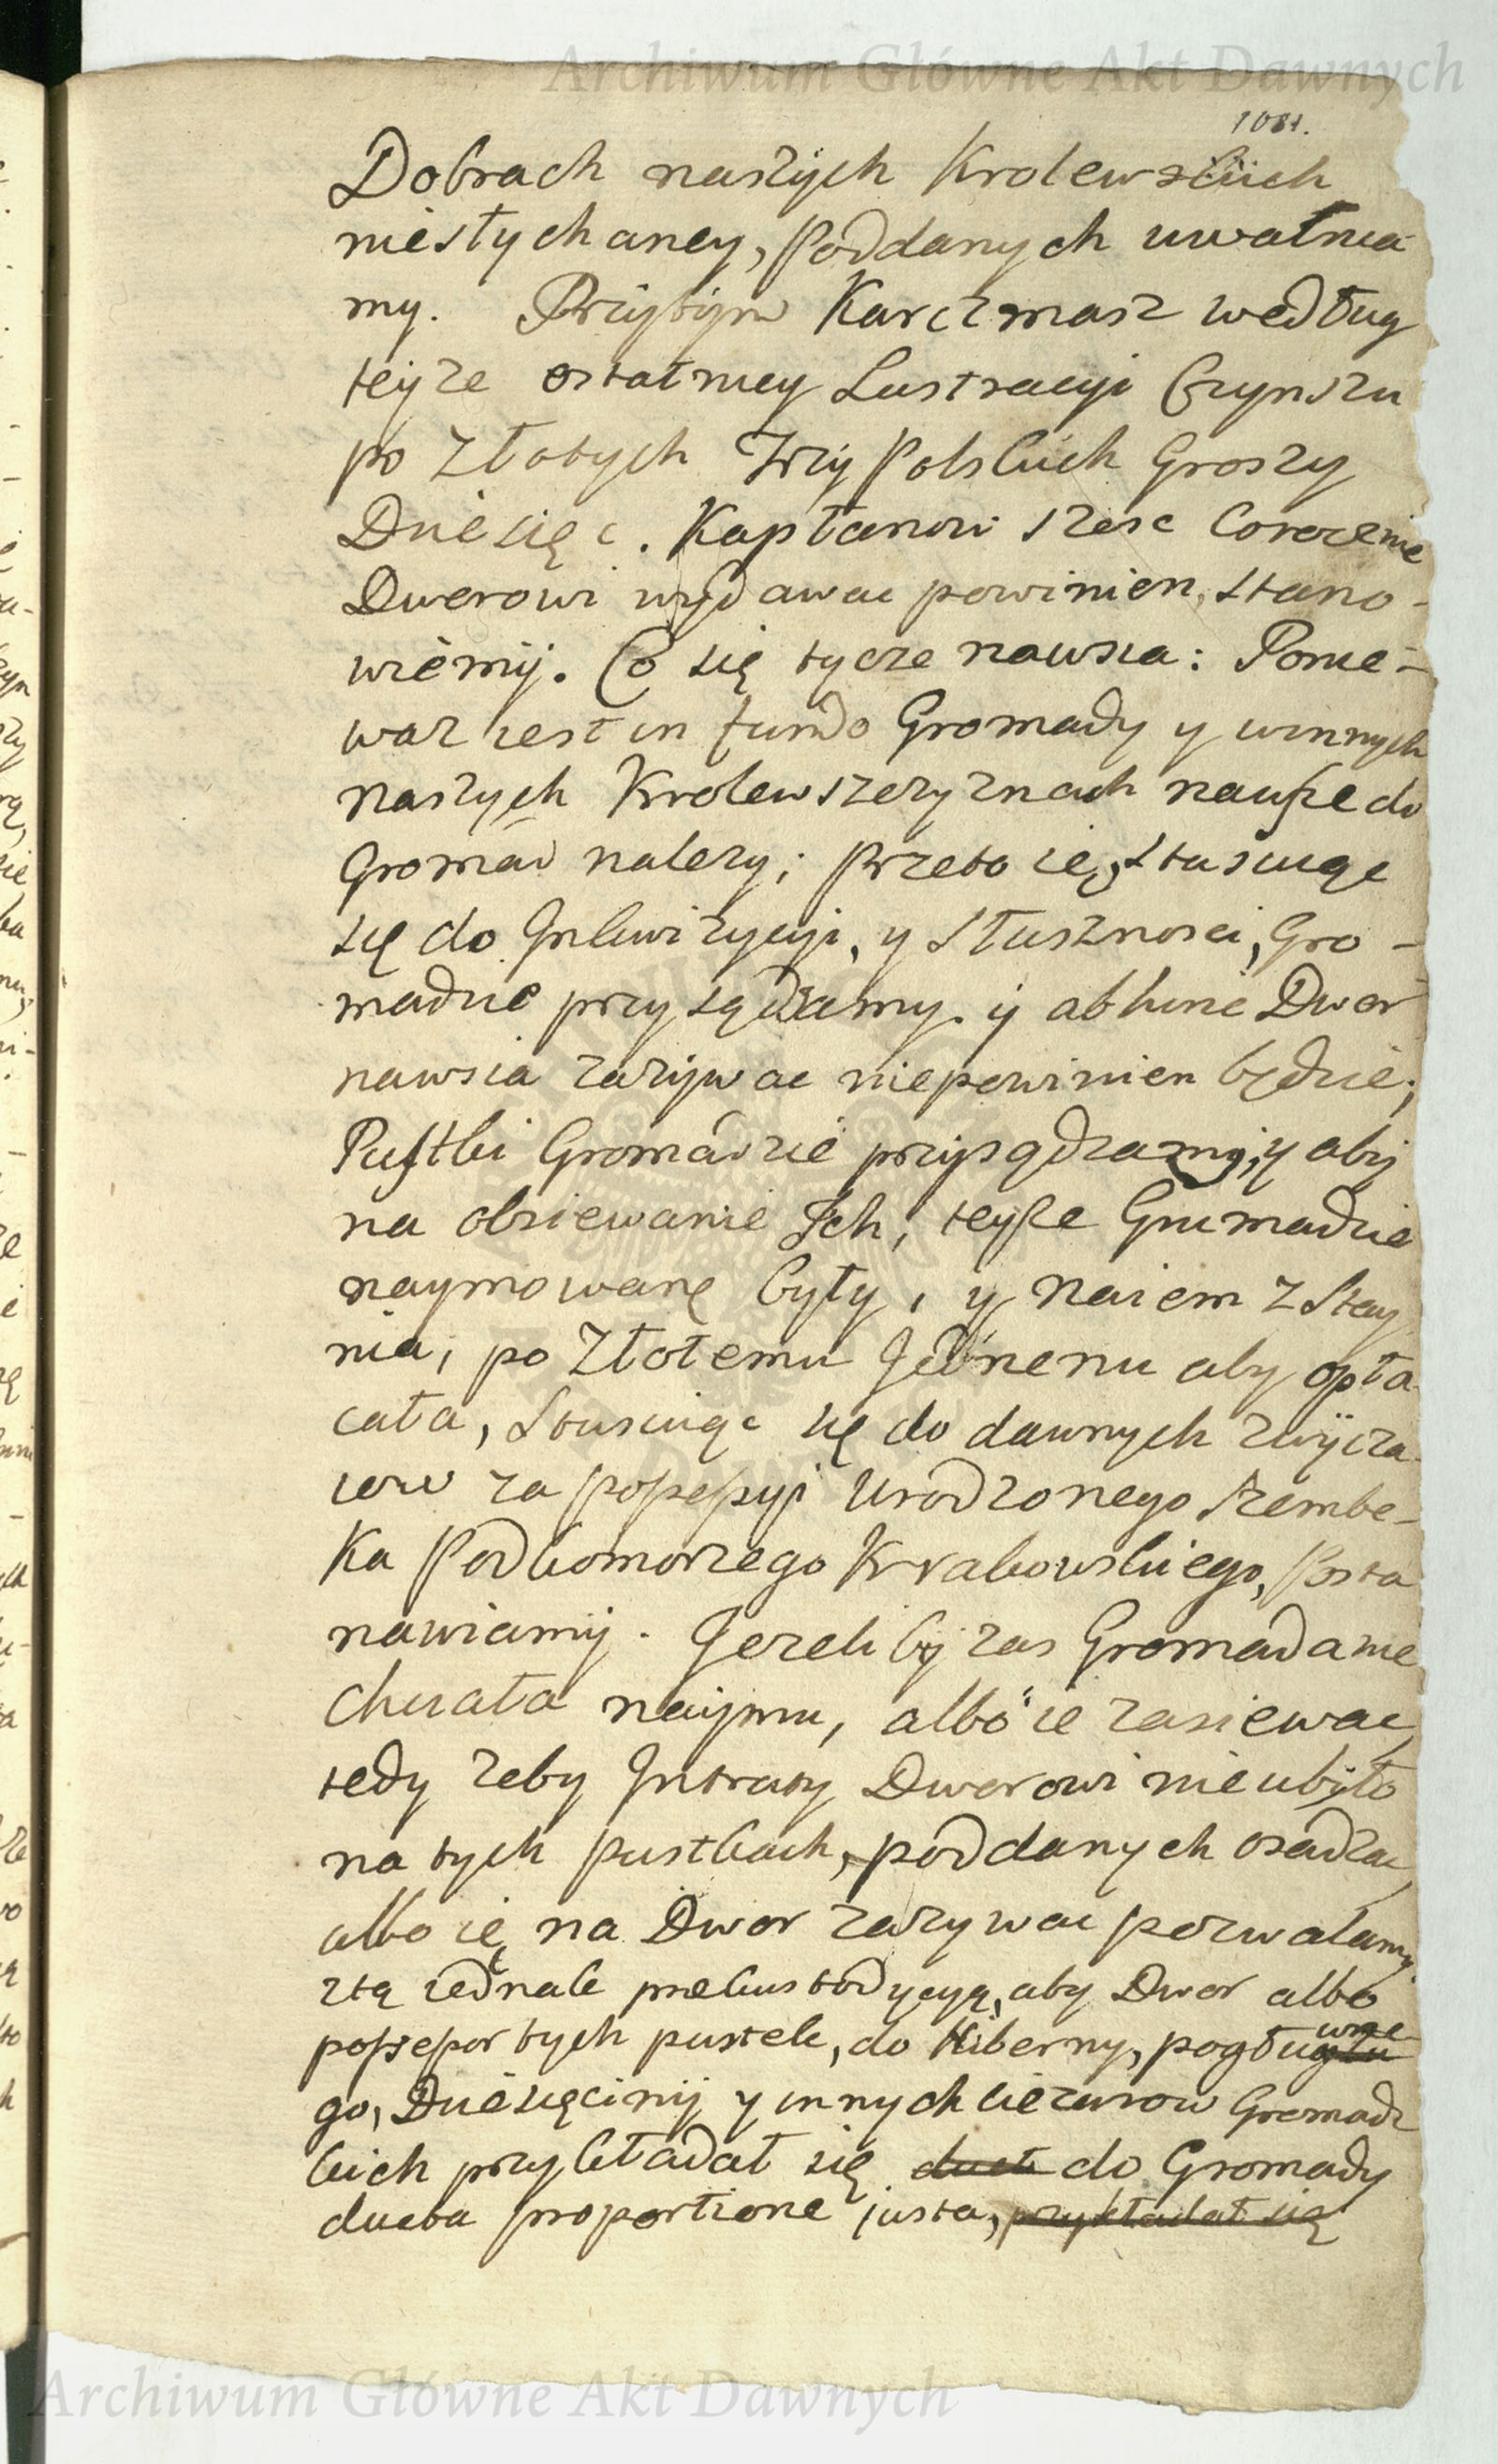 Archiwum Główne Akt Dawnych
1081.
Dobrach naszych Krolewskich
niesłychaney, Poddanych uwalnia
my. Przytym Karczmasz według
teyze ostatniey Lustracyi Czynszu
po Złotych Trzy Polskich Groszy
Dziesięc. Kapłanow szesc Corocznie
Dworowi wydawac powinien, stano-
wiemy. Co się tycze nawsia: Ponie-
waz iest in fundo Gromady y winnych
naszych Krolewszczyznach nawsie do
Gromad nalezy; przeto ie, stosuiąc
się do Inkwizycyi, y słusznosci, Gro-
madzie przysądzamy. y abhinc Dwor
nawsia zazywac niepowinien będzie;
Pustki Gromadzie przysądzamy, y aby
na obsiewanie Ich, teyze Grumadzie
naymowane były, y naiem z Stay
nia, po Złotemu Jednemu aby opła
cała, stosuiąc się do dawnych zwycza
iow za possessyi Urodzonego Szembe-
ka Podkomorzego Krakowskiego, Posta
nawiamy. Jezeli by zas Gromada nie
chciała naymu, albo ie zasiewac,
tedy zeby Intraty Dworowi nieubyło
na tych pustkach, poddanych osadzac,
albo ie na Dwor zazywac pozwalamy
ztą iednak prekustodycyą, aby Dwor albo
possessor tych pustek, do Hiberny, pogłu
wne
go, Dziesięciny y innych cięzarow Gromadz
kich przykładał się duct do Gromady
ducta proportione justa, przykładał się
Archiwum Główne Akt Dawnych